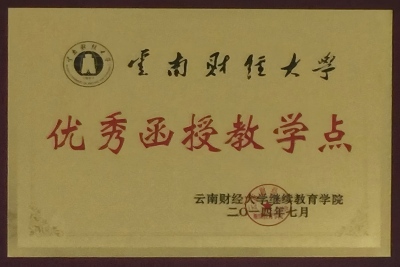 雲南财经大學
优秀函授教学点
云南财经大学继续教育学院
二〇一四年七月